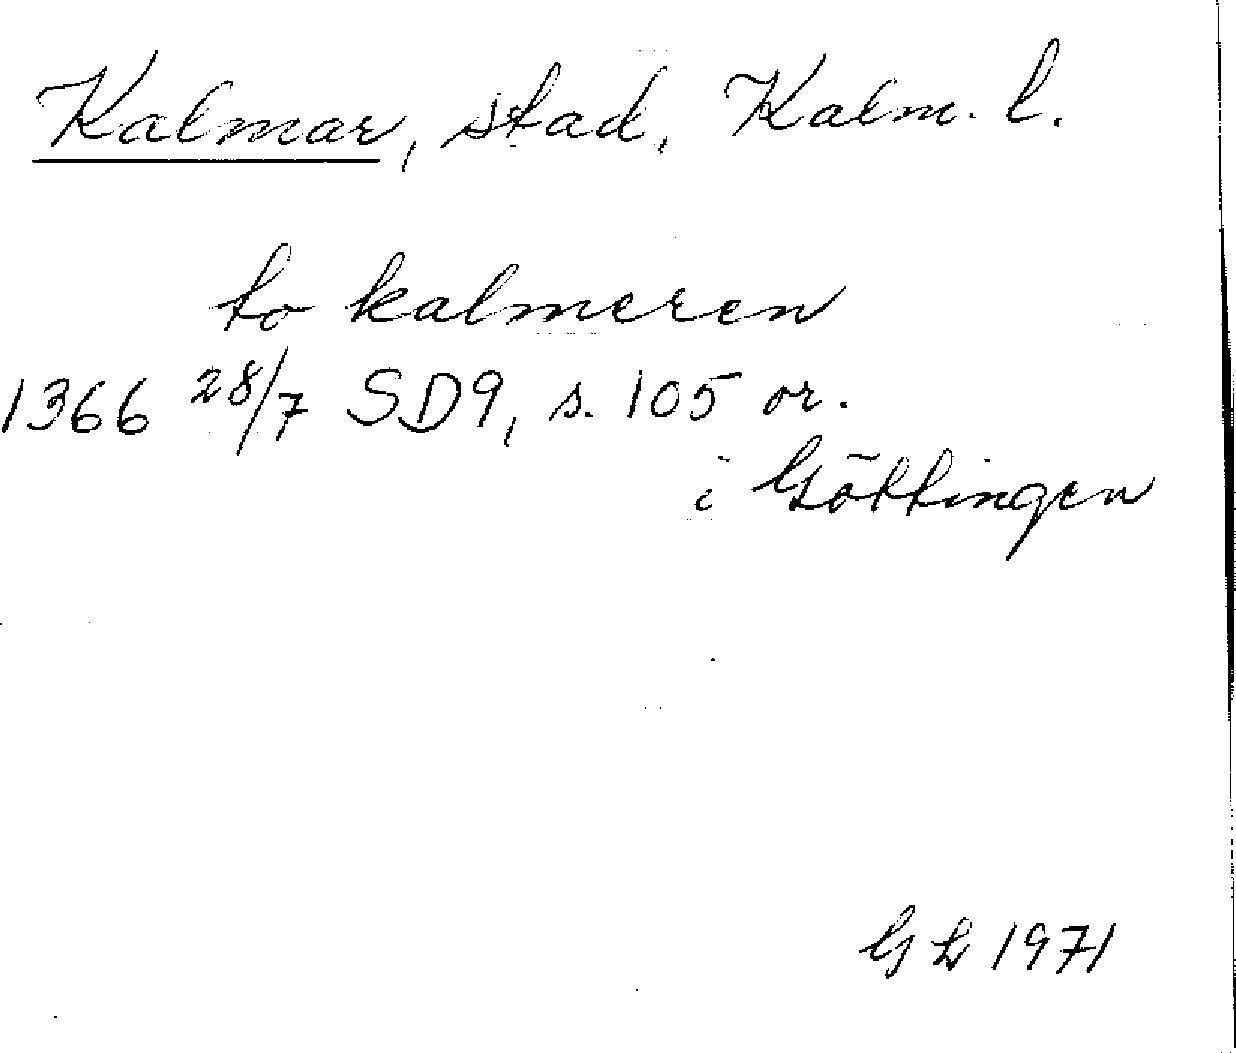 Kalmar, stad, Kalm. l.
to kalmeren
1366 28/7 SD9, s. 105 or.
i Göttingen
1971